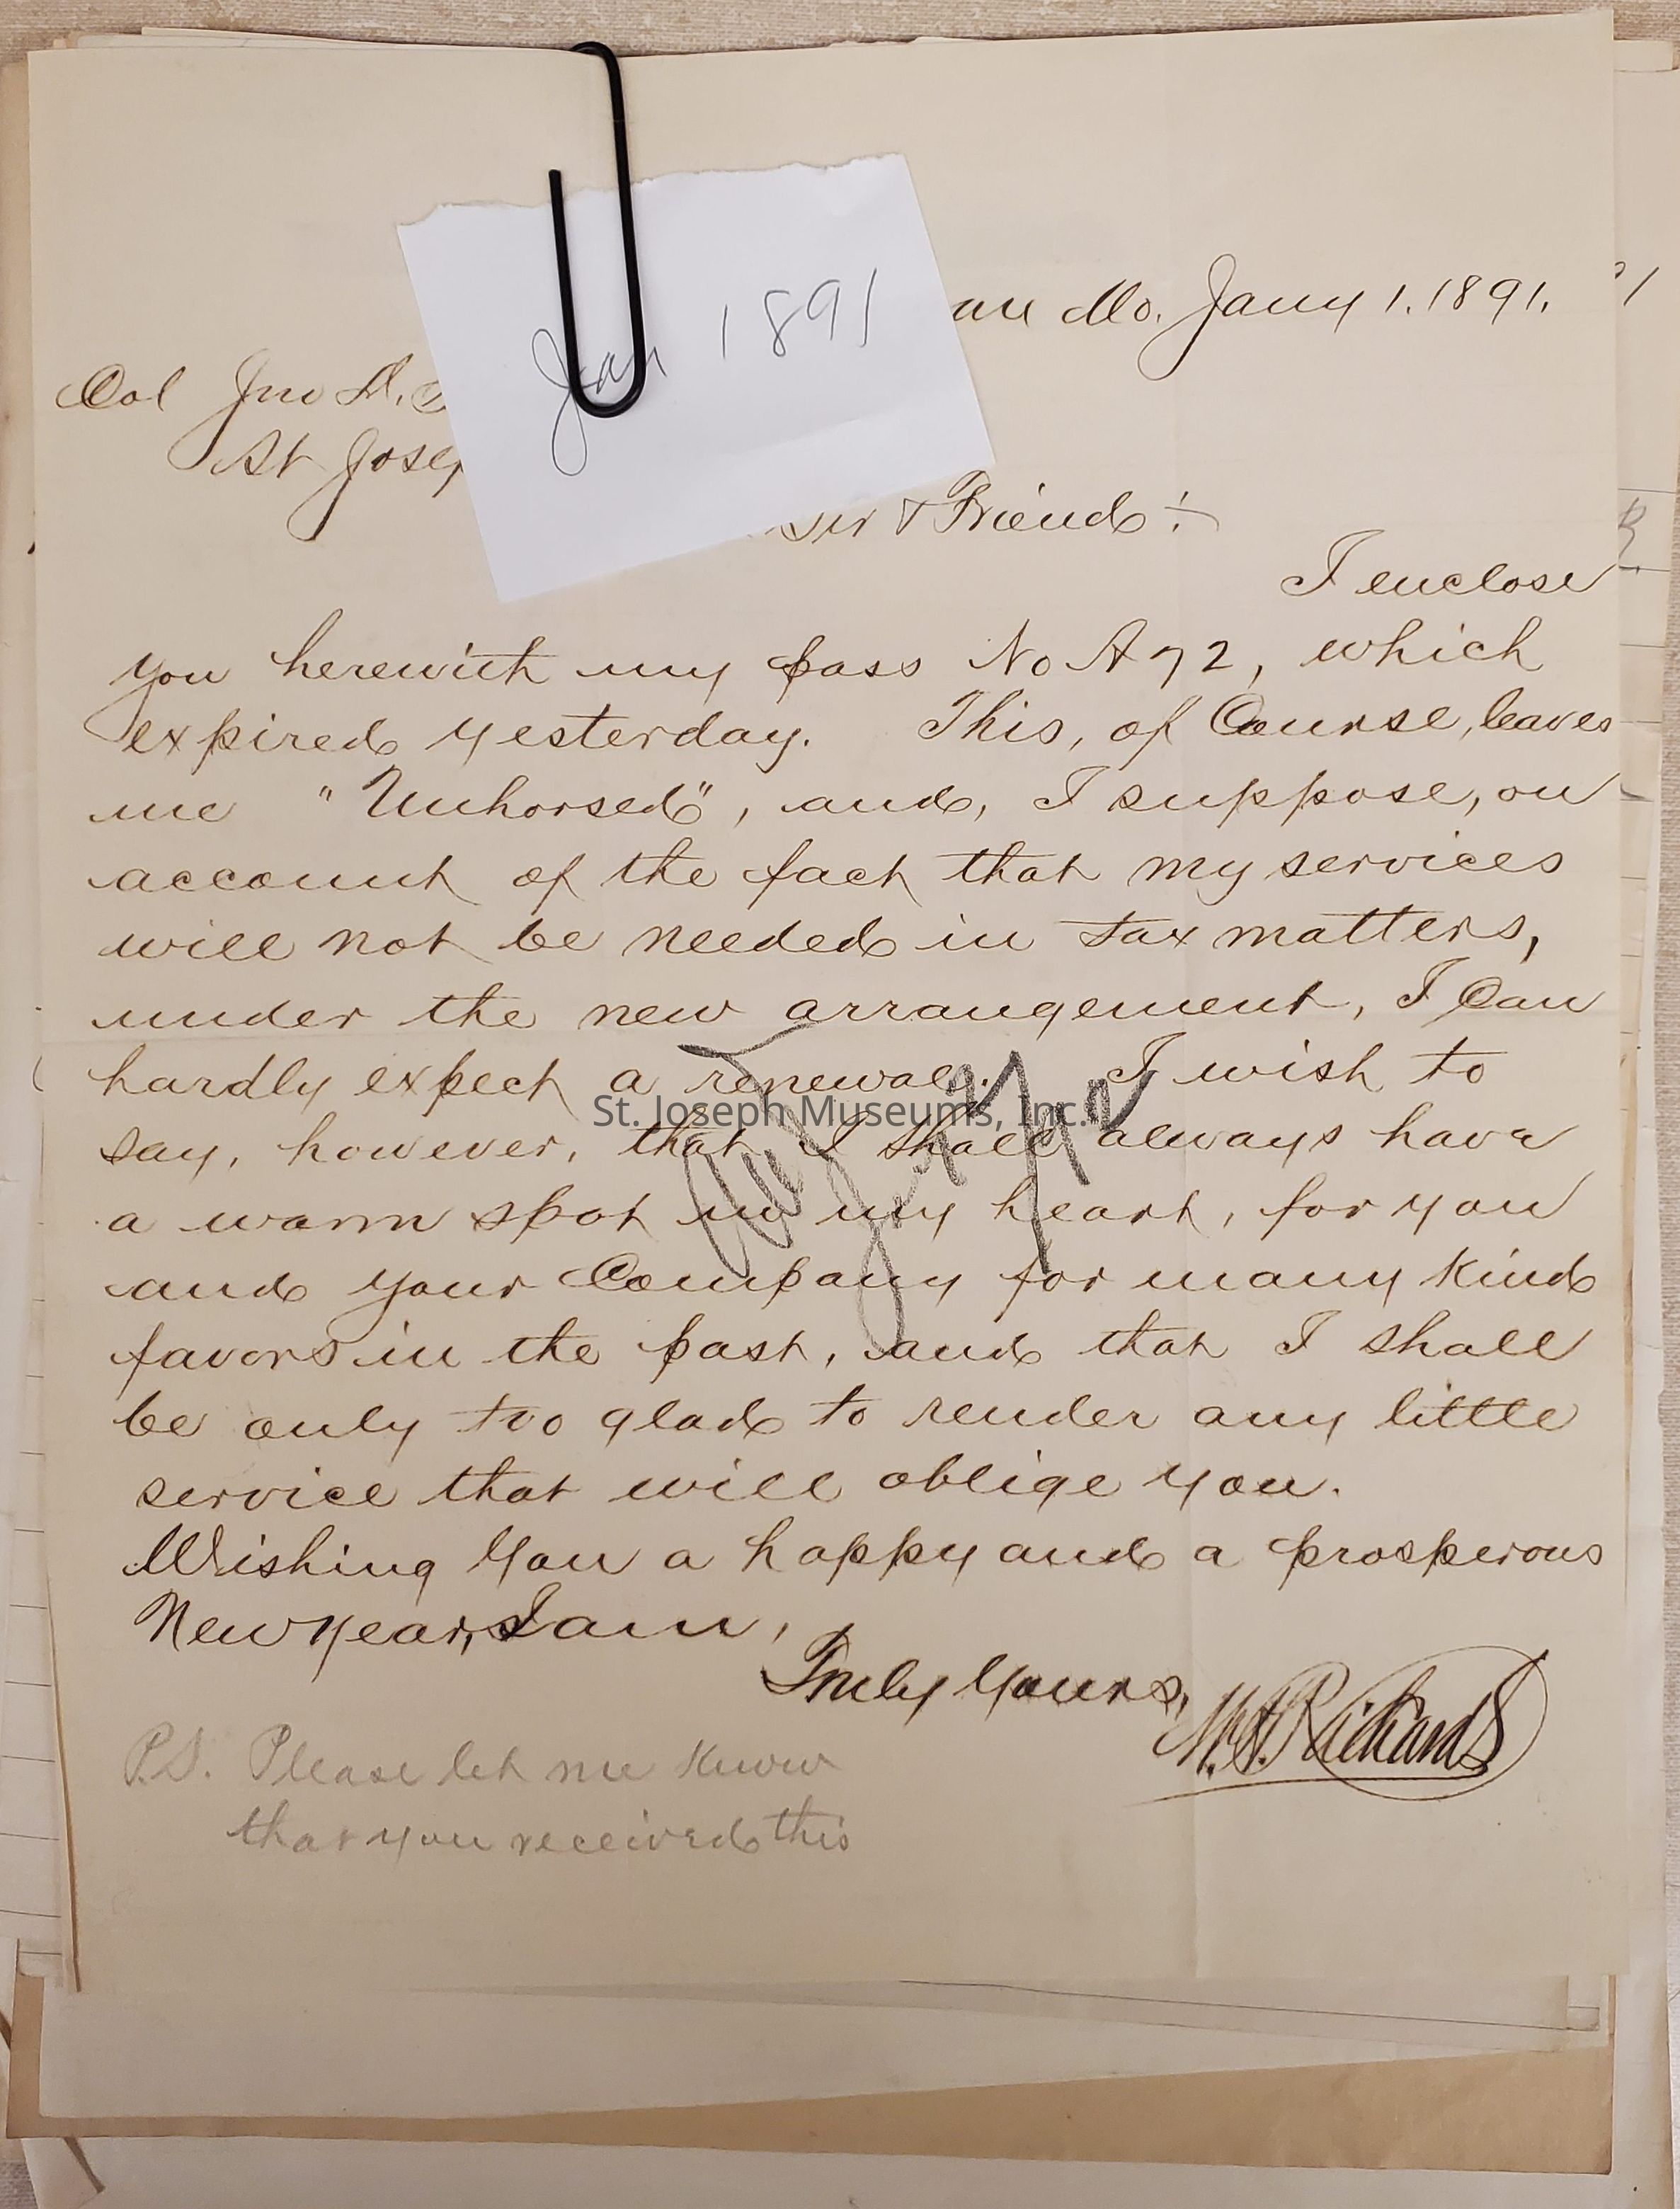 Jan 1891
Mo. Jany 1. 1891.
Col Jno
St Josep
Sir & Friend:
I enclose
you herewith my pass No A 72, which
expired yesterday. This, of Course, leaves
me "Unhorsed", and, I suppose, on
account of the fact that my services
will not be needed in tax matters,
under the new arrangement, I Can
hardly expect a renewal. I wish to
St. Joseph Museums, Inc.
say, however, that I shall always have
a warm spot in my heart, for you
and your Company for many kind
favors in the past, and that I shall
be only too glad to render any little
service that will oblige you.
Wishing You a happy and a prosperous
New Year, I am,
Truly Yours,
Richards
P.S. Please let me know
that you received this